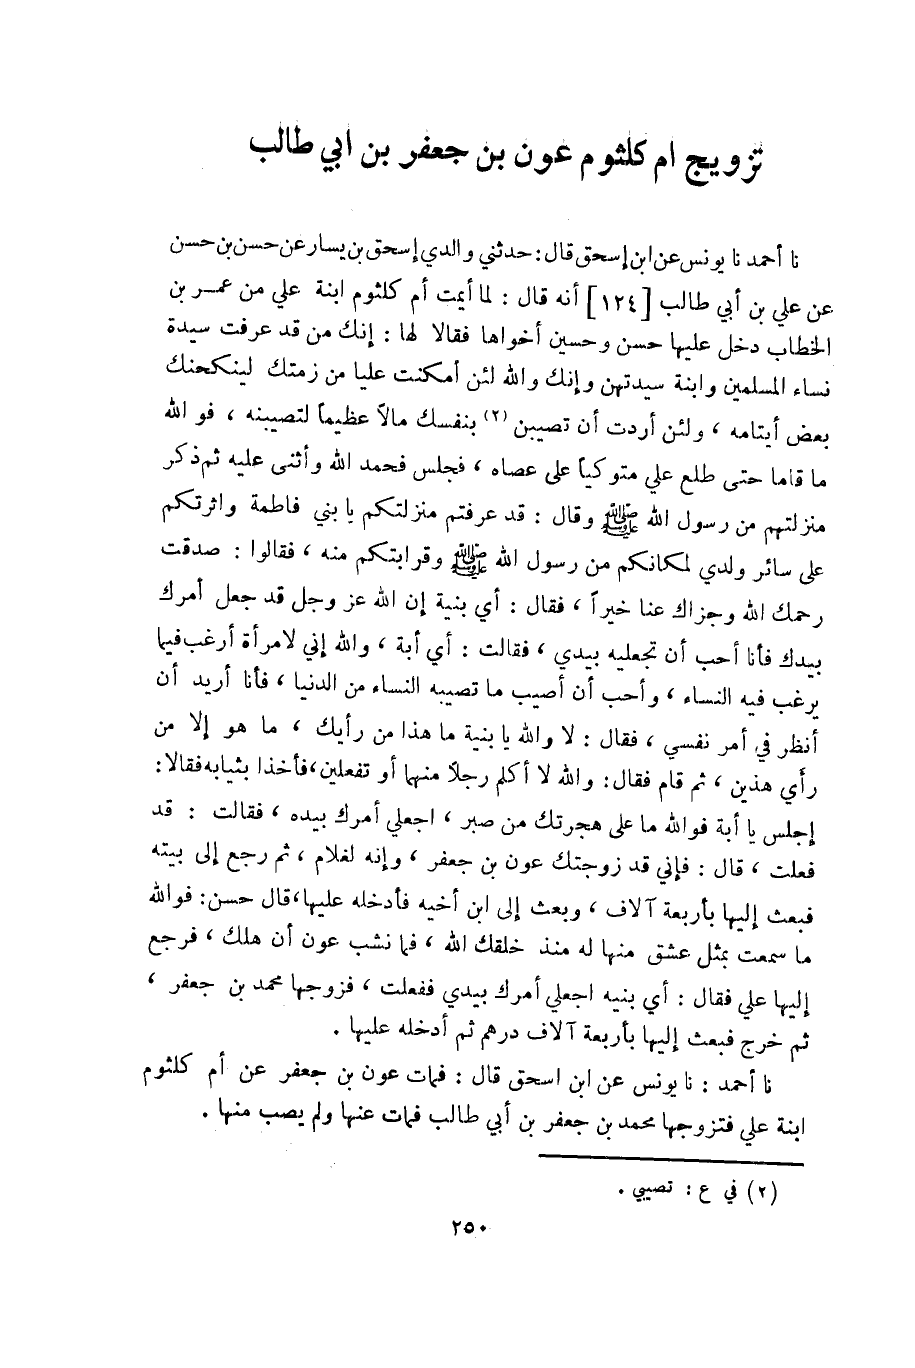 تزويج ام كلثوم عون بن جعفر بن ابي طالب
نا أحمد نا يونس عن ابن إسحق قال : حدثني والدي إسحق بن يسار عن حسن بن حسن
عن علي بن أبي طالب [ ١٢٤ ] أنه قال : لما أيمت أم كلثوم ابنة علي من عمر بن
الخطاب دخل عليها حسن وحسين أخواها فقالا لها : إنك من قد عرفت سيدة
نساء المسلمين وابنة سيدتهن وإنك والله لئن أمكنت عليا من زمتك لينكحنك
بعض أيتامه ، ولئن أردت أن تصيبن (٢) بنفسك مالاً عظيماً لتصيبنه ، فو الله
ما قاما حتى طلع علي متوكياً على عصاه ، فجلس فحمد الله وأثنى عليه ثم ذكر
منزلتهم من رسول الله ﷺ وقال : قد عرفتم منزلتكم يا بني فاطمة واثرتكم
على سائر ولدي لمكانكم من رسول الله ﷺ وقرابتكم منه ، فقالوا : صدقت
رحمك الله وجزاك عنا خيراً ، فقال : أي بنية إن الله عز وجل قد جعل أمرك
بيدك فأنا أحب أن تجعليه بيدي ، فقالت : أي أبة ، والله إني لامرأة أرغب فيما
يرغب فيه النساء ، وأحب أن أصيب ما تصيبه النساء من الدنيا ، فأنا أريد أن
أنظر في أمر نفسي ، فقال : لا والله يا بنية ما هذا من رأيك ، ما هو إلا من
رأي هذين ، ثم قام فقال : والله لا أكلم رجلاً منهما أو تفعلين ، فأخذا بثيابه فقالا :
إجلس يا أبة فوالله ما على هجرتك من صبر ، اجعلي أمرك بيده ، فقالت : قد
فعلت ، قال : فإني قد زوجتك عون بن جعفر ، وإنه لغلام ، ثم رجع إلى بيته
فبعث إليها بأربعة آلاف ، وبعث إلى ابن أخيه فأدخله عليها ، قال حسن : فوالله
ما سمعت بمثل عشق منها له منذ خلقك الله ، فما نشب عون أن هلك ، فرجع
إليها علي فقال : أي بنيه اجعلي أمرك بيدي ففعلت ، فزوجها محمد بن جعفر ،
ثم خرج فبعث إليها بأربعة آلاف درهم ثم أدخله عليها .
نا أحمد : نا يونس عن ابن اسحق قال : فمات عون بن جعفر عن أم كلثوم
ابنة علي فتزوجها محمد بن جعفر بن أبي طالب فمات عنها ولم يصب منها .
(٢) في ع : تصيبي .
٢٥٠